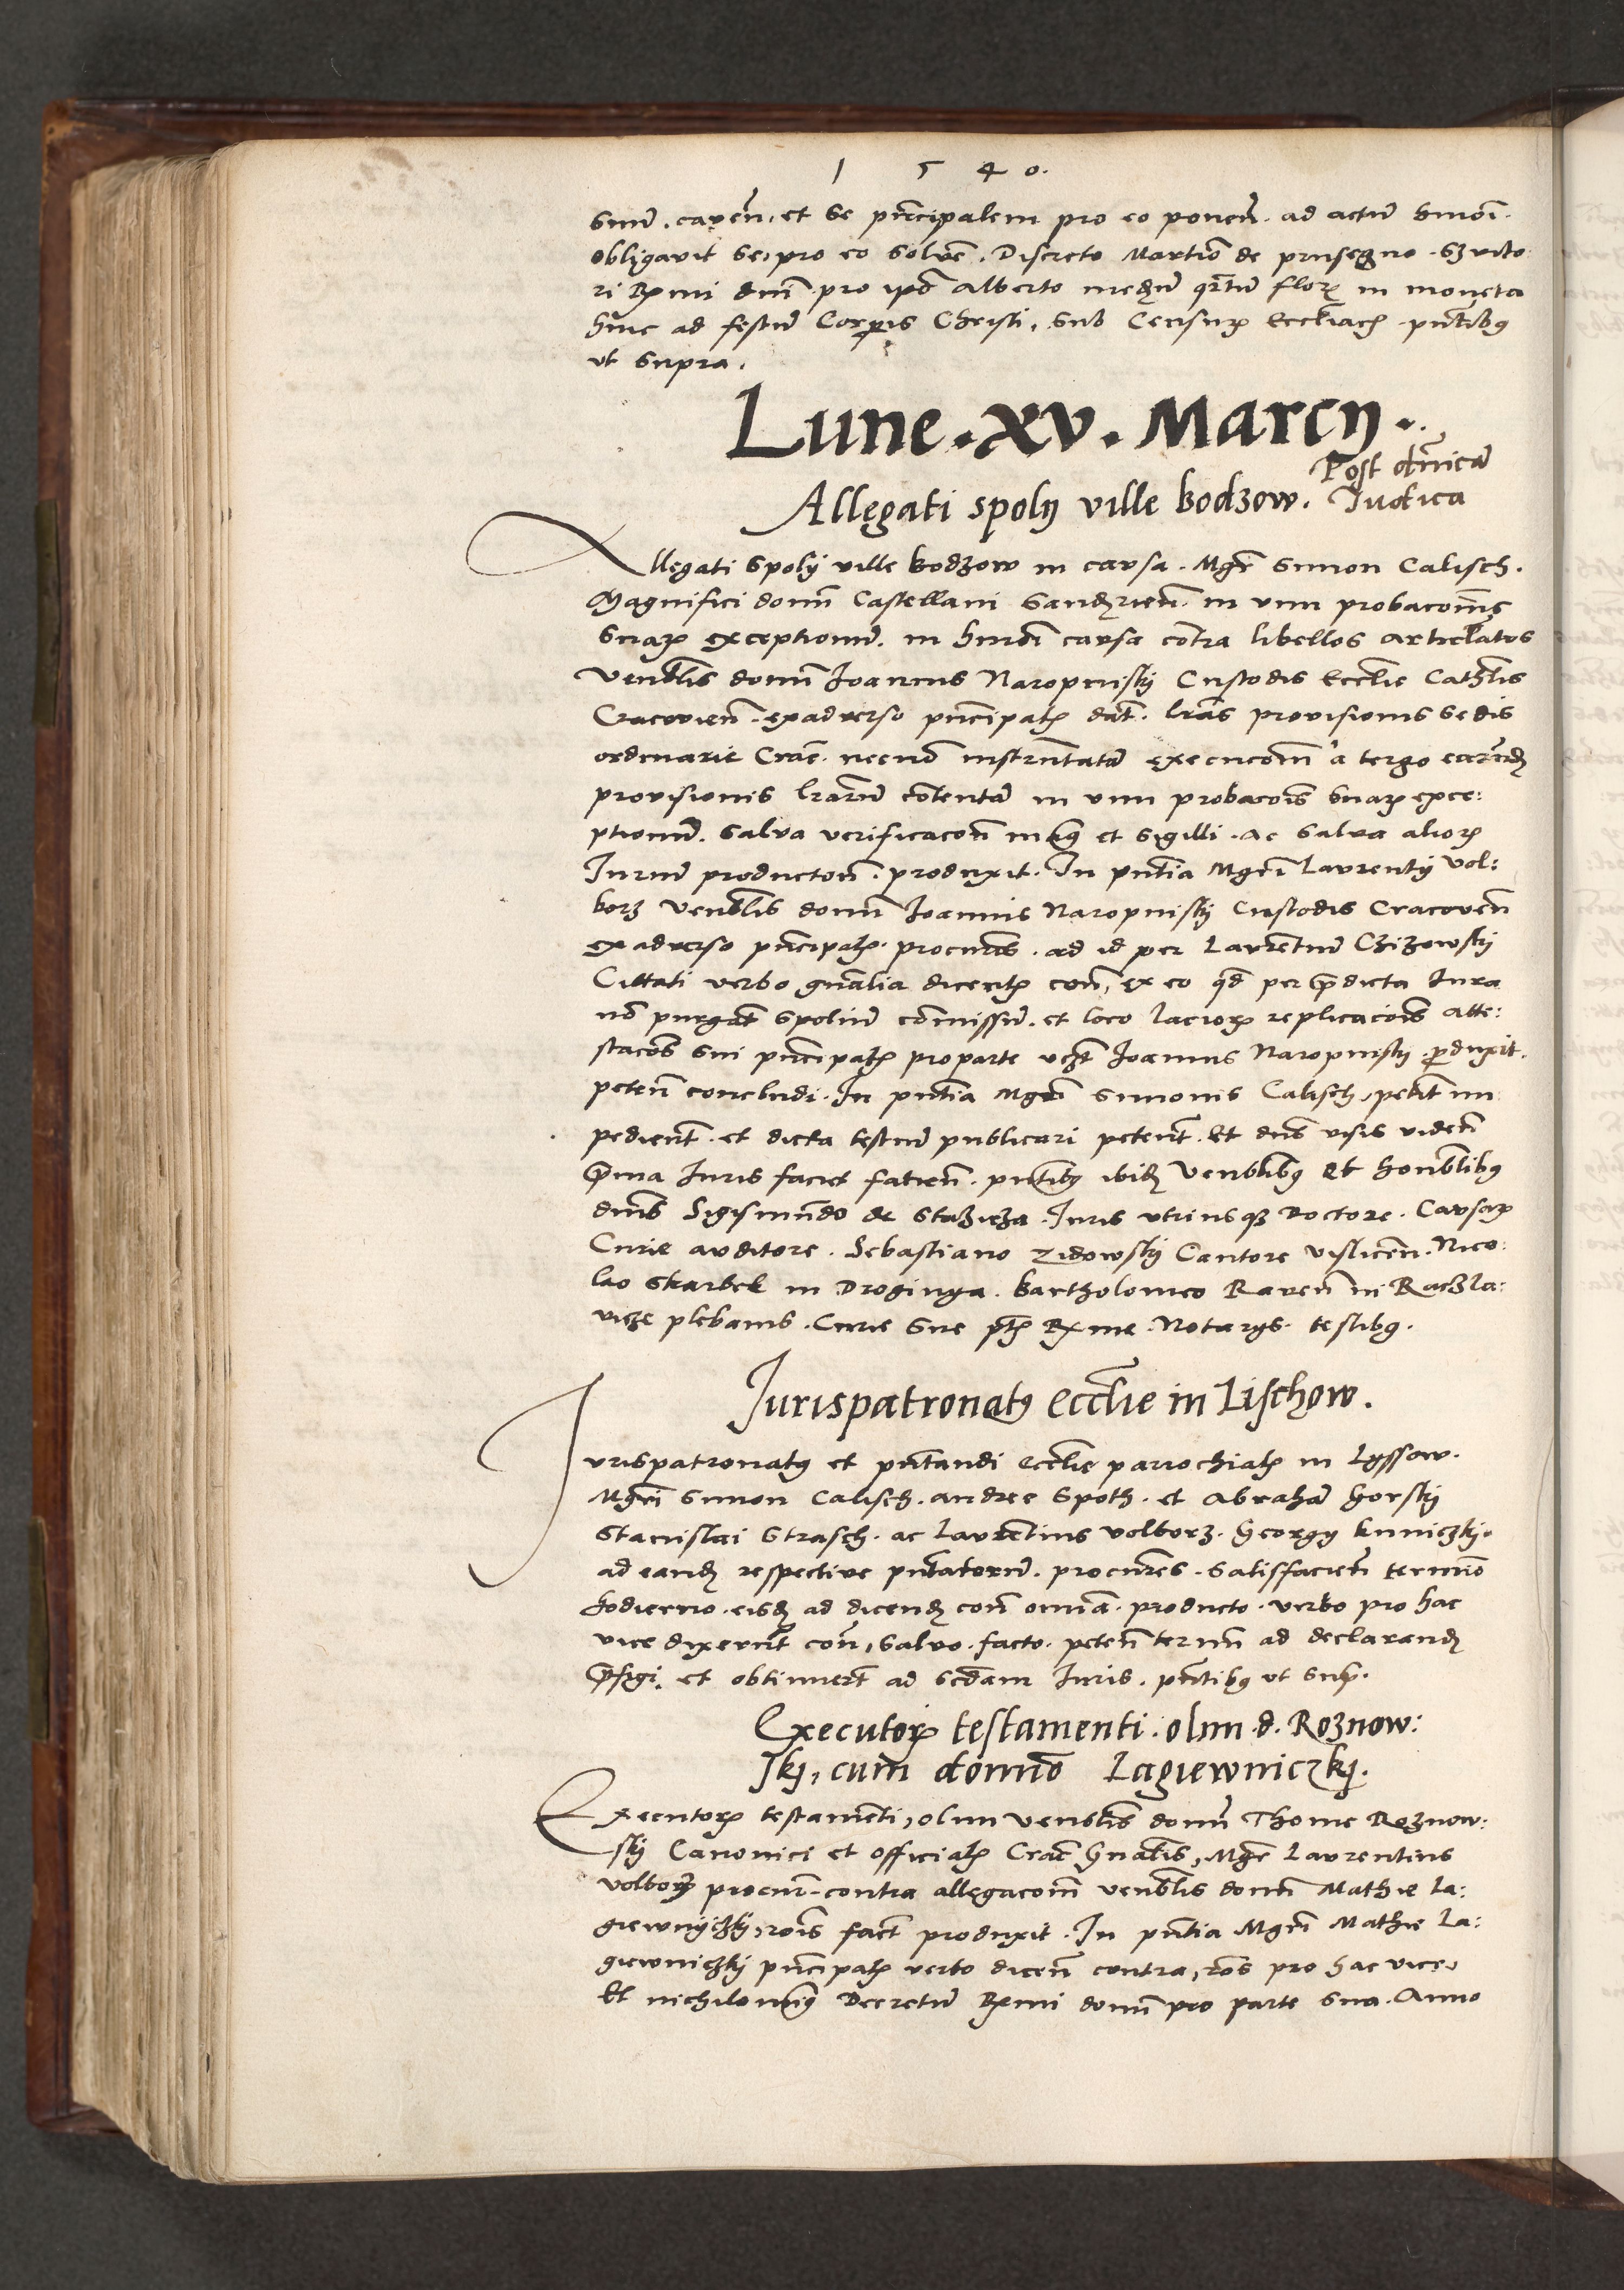 1 5 4 0.
suum. caven. et se principalem pro eo ponen. ad actum hmoi.
obligavit se, pro eo solvere. Discreto Martino de prusegno. Servito:
ri Rmi dni pro ipso Alberto medium quartum flor in moneta
hinc ad festum Corporis Christi, sub Censuris eccliacis pntibus
ut supra.
Lune. xv. Marcij.
Post dnicam
Iudica
Allegati spolij ville bodzow.
Allegati spolij ville bodzow in causa. Mgri Simon Calisch.
Magnifici domini Castellani Sandzien. in vim probacionis
suarum exceptionum. in hmodi causa contra libellos articulatos
Venblis domini Joannis Naropinskij Custodis Ecclie Cathlis
Cracovien. exadverso principalis dat. lras provisionis sedis
ordinarie Crac. necnon instrumentatam execucionem a tergo earundem
provisionis lrarum contentam in vim probacionis suarum exce:
ptionum. Salva verificacione manus et sigilli. ac salva aliorum
Iurium productione. produxit. In pntia Mgri Laurentij vol:
borz Venblis domini Joannis Naropinskij Custodis Cracovien
exadverso principalis procuratoris. ad id per Laurentium Czizowskij
Cittati verbo gnalia dicentis con, ex eo quod per predicta Iura
non purgat spolium commissum. et loco laciorum replicacionis atte:
stacones sui principalis pro parte Joannis Naropinskij. produxit.
peten concludi. In pntia Mgri Simonis Calisch, petit im
pedient. et dicta testium publicari petent. Et dns visis viden
prima Iuris faciet fatien. pntibus ibidem Venblibus et honblibus
dnis Sigismundo de Stazicza. Iuris utriusque Doctore. Causarum
Curie auditore. Sebastiano Zidowskij Cantore vislicen. Nico:
lao Skarbek in Droginya. bartholomeo Raven in Raczla:
vicze plebanis. Curie Sue Rme. Notarijs. testibus.
Iurispatronatus ecclie in Lischow.
Iurispatronatus et pntandi ecclie parrochialis in Lyssow.
Mgri Simon Calisch. andree Spoth. et Abraham Gorskij
Stanislai Strasch. ac Laurentius volborz. Georgij kuniczkij.
ad eandem respective pntatorum. procuratores. satisfacien termino
hodierno. eisdem ad dicendum con omnia. producto. verbo pro hac
vice dixerunt con, salvo. facto. peten terminum ad declarandum
prefigi. et obtinuerunt ad scdam Iuris. pntibus ut supra.
Executorum testamenti. olim. d. Roznow:
skj, cum domino Lagiewniczkj.
Executorum testamenti, olim Venblis domini Thome Roznow:
skij Canonici et officialis Crac Gnalis, Mgr Laurentius
volborz procurator. contra allegaciones venblis domini Mathie La:
giewnyiczkij, rois fact produxit. In pntia Mgri Mathie La:
giewniczkij principalis verbo dicen contra, ros pro hac vice,
Et nichilominus Decretum Rmi domini pro parte sua. Anno